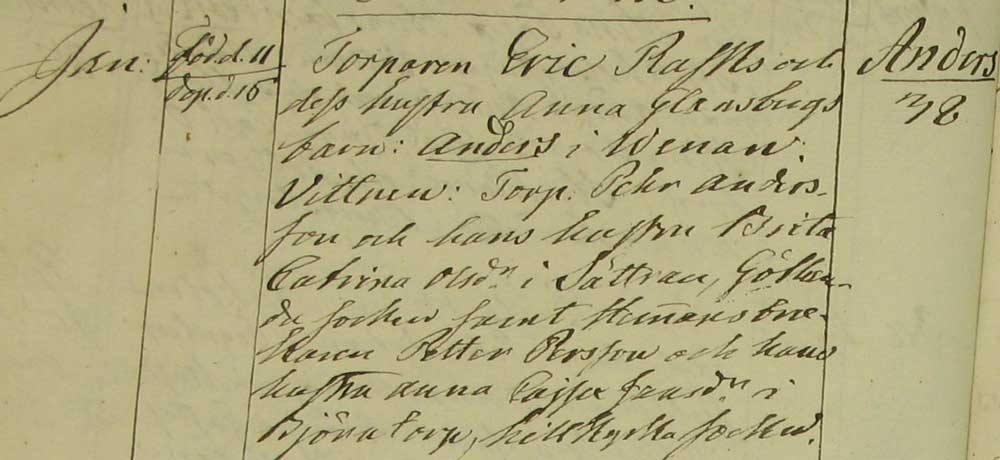 Jan: Född d. 11 Torparen Eric Rasks och Anders
döp. d. 16 dess hustru Anna Glansbergs 38
barn: Anders i Wenan.
Vittnen: Torp. Pehr Anders-
son och hans hustru Brita
Catrina Olsdr i Sättran, Götlun-
da socken samt Hemmansbru-
karen Petter Persson och hans
hustru Anna Cajsa Jansdr i
Björntorp, Lillkyrka socken.